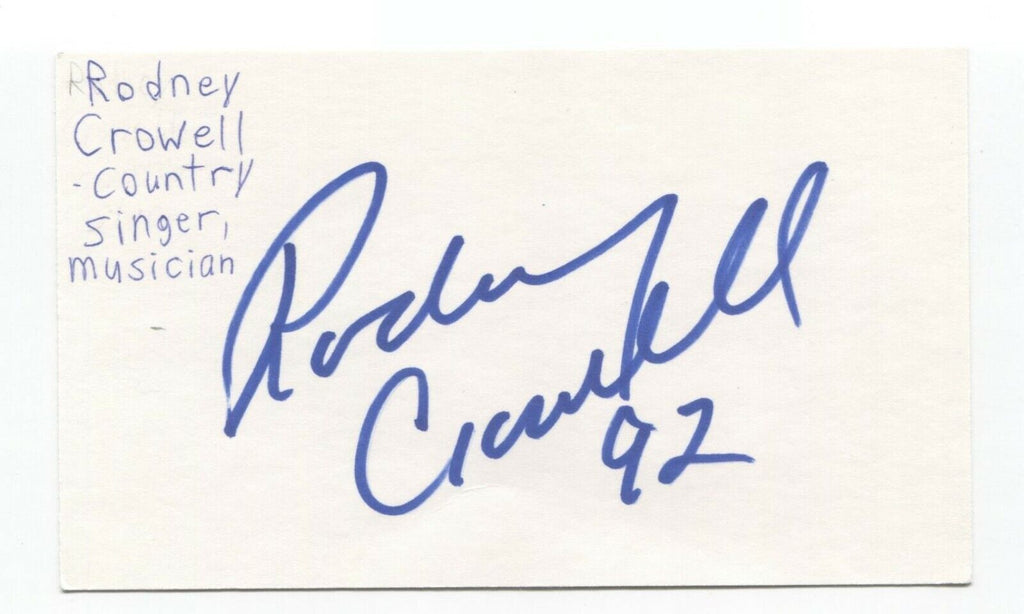 Rodney
Crowell
- Country
singer,
musician
Rodney
Crowell
92